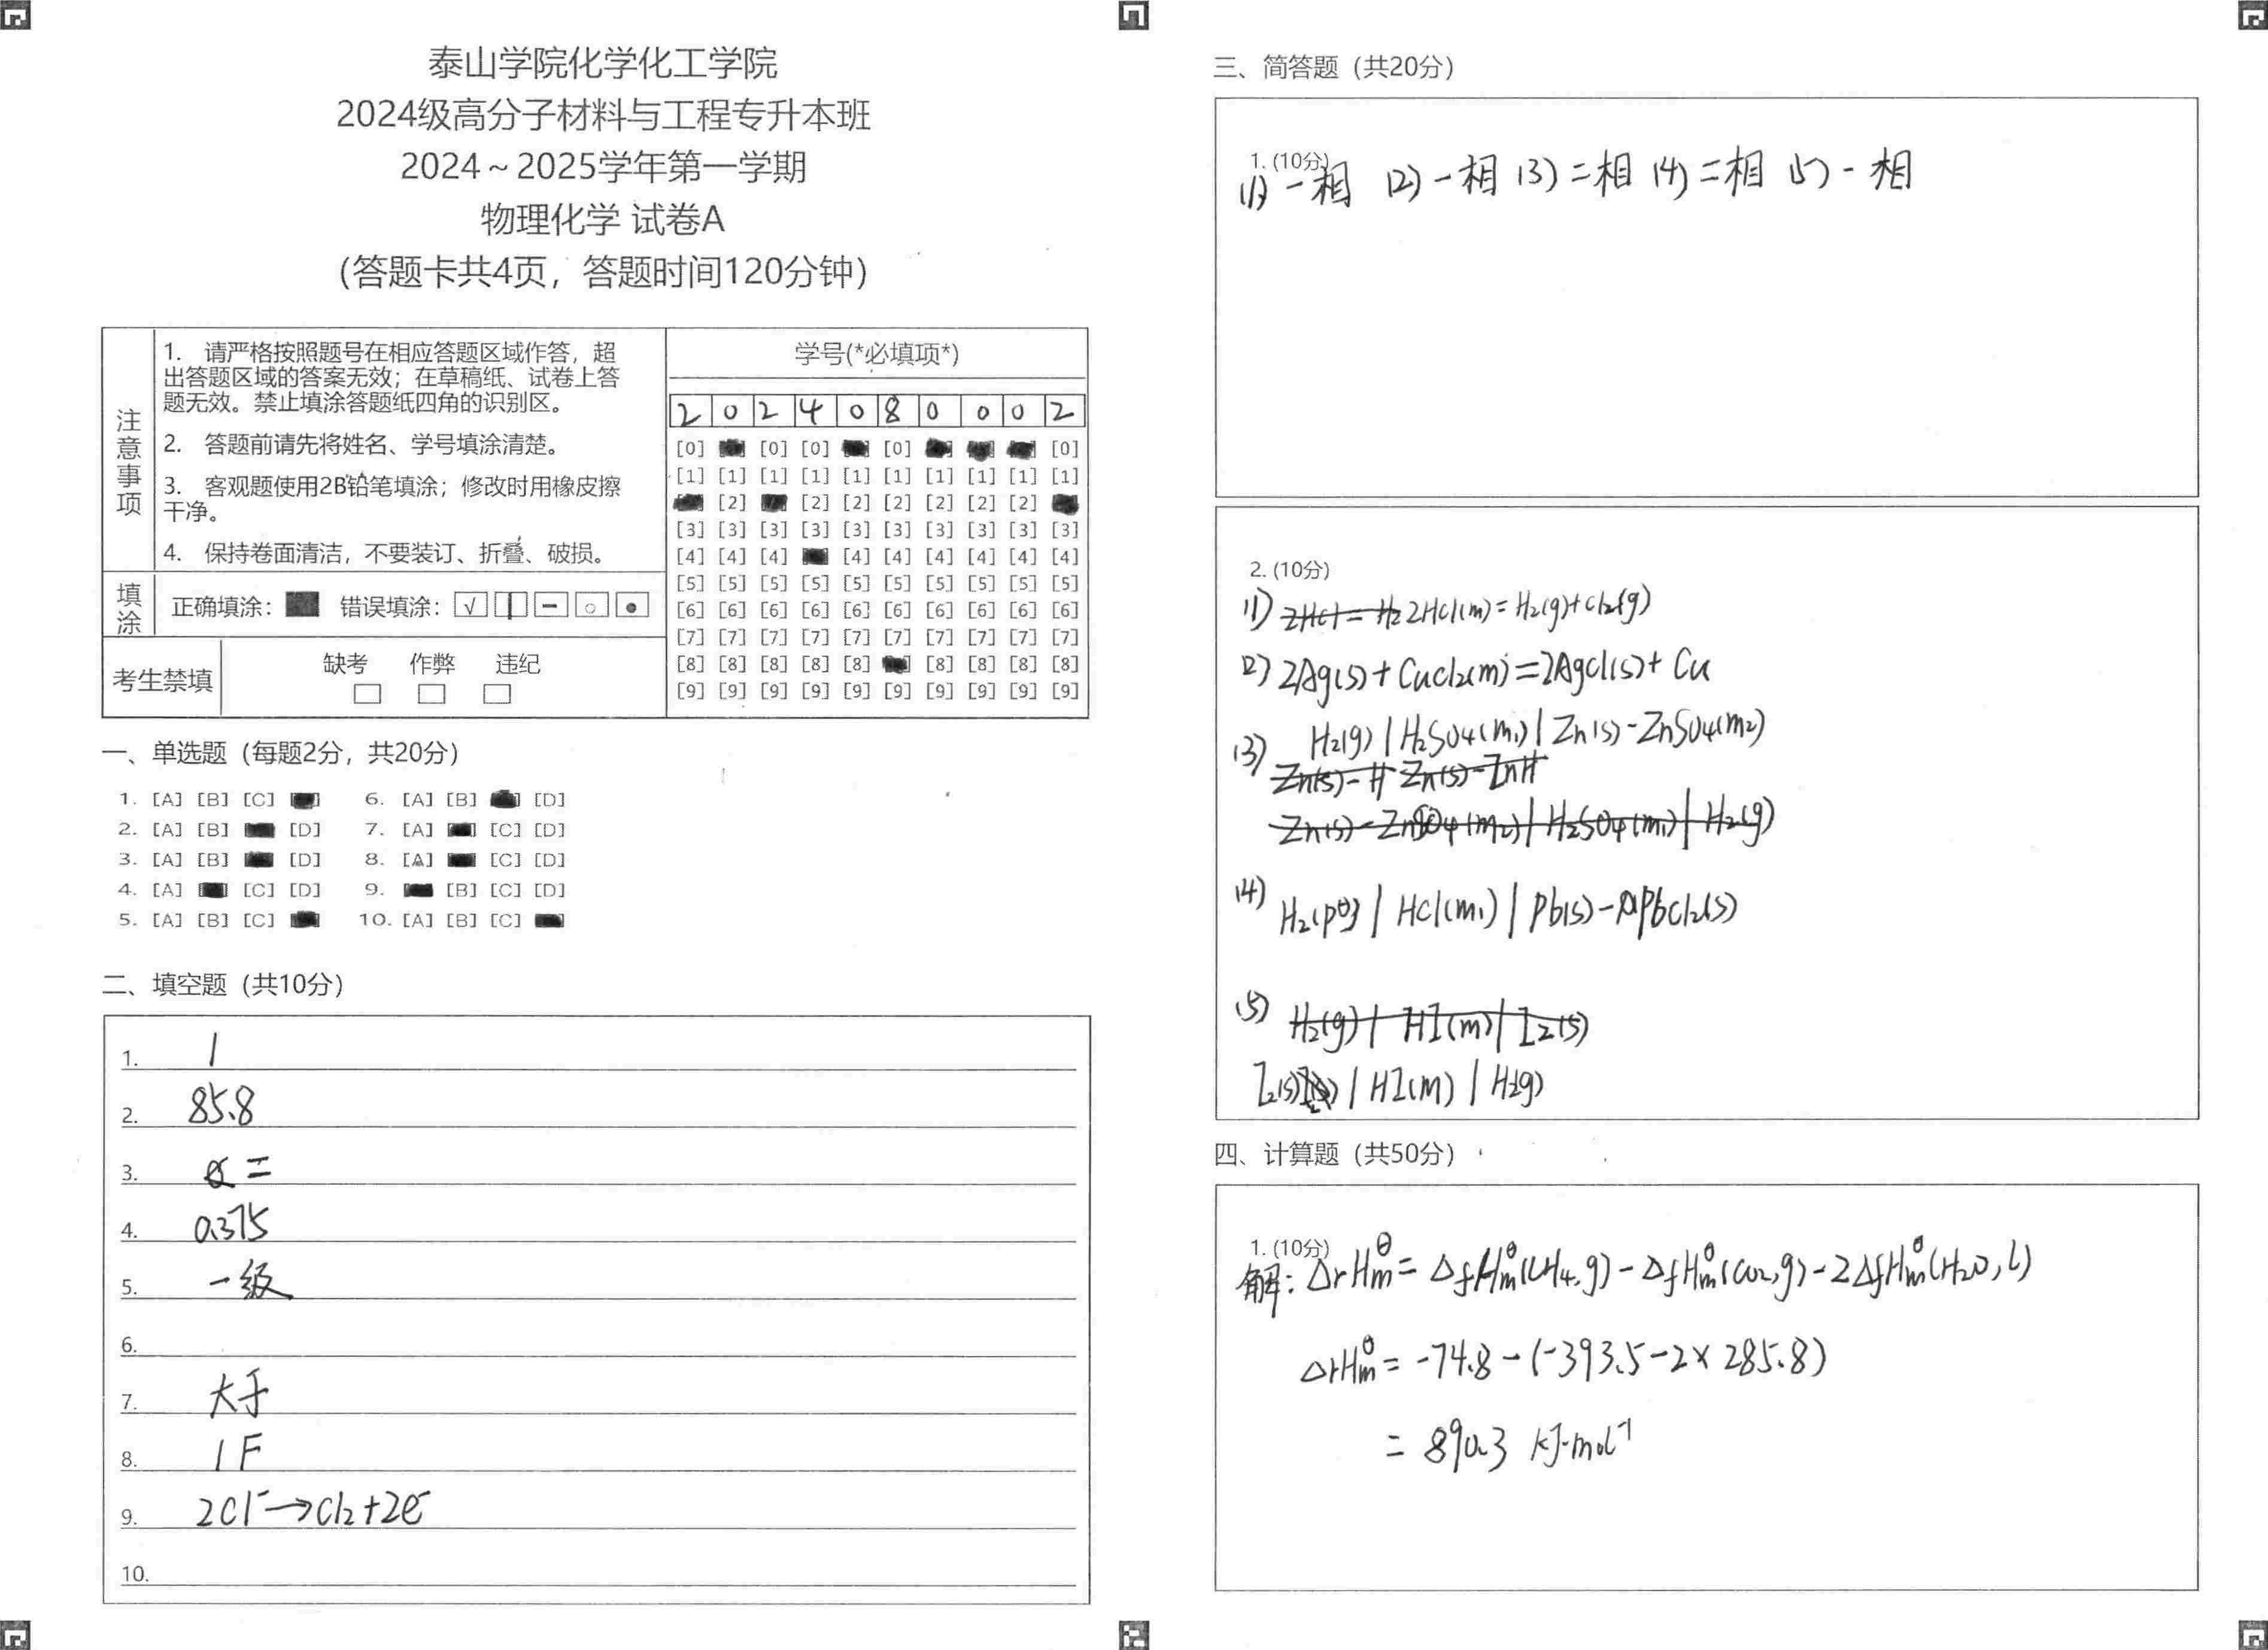 泰山学院化学化工学院
2024级高分子材料与工程专升本班
2024～2025学年第一学期
物理化学 试卷A
(答题卡共4页，答题时间120分钟)
注意事项
1. 请严格按照题号在相应答题区域作答，超
出答题区域的答案无效；在草稿纸、试卷上答
题无效。禁止填涂答题纸四角的识别区。
2. 答题前请先将姓名、学号填涂清楚。
3. 客观题使用2B铅笔填涂；修改时用橡皮擦
干净。
4. 保持卷面清洁，不要装订、折叠、破损。
填涂 正确填涂： 错误填涂： √
考生禁填 缺考 作弊 违纪
学号(*必填项*)
2 0 2 4 0 8 0 0 0 2
[0] [0] [0] [0] [0]
[1] [1] [1] [1] [1] [1] [1] [1] [1] [1]
[2] [2] [2] [2] [2] [2] [2]
[3] [3] [3] [3] [3] [3] [3] [3] [3] [3]
[4] [4] [4] [4] [4] [4] [4] [4] [4]
[5] [5] [5] [5] [5] [5] [5] [5] [5] [5]
[6] [6] [6] [6] [6] [6] [6] [6] [6] [6]
[7] [7] [7] [7] [7] [7] [7] [7] [7] [7]
[8] [8] [8] [8] [8] [8] [8] [8] [8]
[9] [9] [9] [9] [9] [9] [9] [9] [9] [9]
一、单选题（每题2分，共20分）
1. [A] [B] [C] 6. [A] [B] [D]
2. [A] [B] [D] 7. [A] [C] [D]
3. [A] [B] [D] 8. [A] [C] [D]
4. [A] [C] [D] 9. [B] [C] [D]
5. [A] [B] [C] 10. [A] [B] [C]
二、填空题（共10分）
1. 1
2. 85.8
3. α =
4. 0.375
5. 一级
6.
7. 大于
8. 1F
9. 2Cl⁻→Cl₂+2e⁻
10.
三、简答题（共20分）
1. (10分)
(1) 一相 (2) 一相 (3) 二相 (4) 二相 (5) 一相
2. (10分)
(1) 2HCl = H₂ 2HCl(m) = H₂(g)+Cl₂(g)
(2) 2Ag(s)+CuCl₂(m)=2AgCl(s)+Cu
(3) H₂(g) | H₂SO₄(m₁) | Zn(s)-ZnSO₄(m₂)
Zn(s)-H Zn(s)-ZnH
Zn(s)-ZnSO₄(m₂) | H₂SO₄(m₁) | H₂(g)
(4) H₂(p^θ) | HCl(m₁) | Pb(s)-PbCl₂(s)
(5) H₂(g) | HI(m) | I₂(s)
I₂(s) | HI(m) | H₂(g)
四、计算题（共50分）
1. (10分)
解: ΔrHm^θ = ΔfHm^θ(CH₄,g) - ΔfHm^θ(CO₂,g) - 2ΔfHm^θ(H₂O,l)
ΔrHm^θ = -74.8-(-393.5-2×285.8)
= 890.3 kJ·mol⁻¹